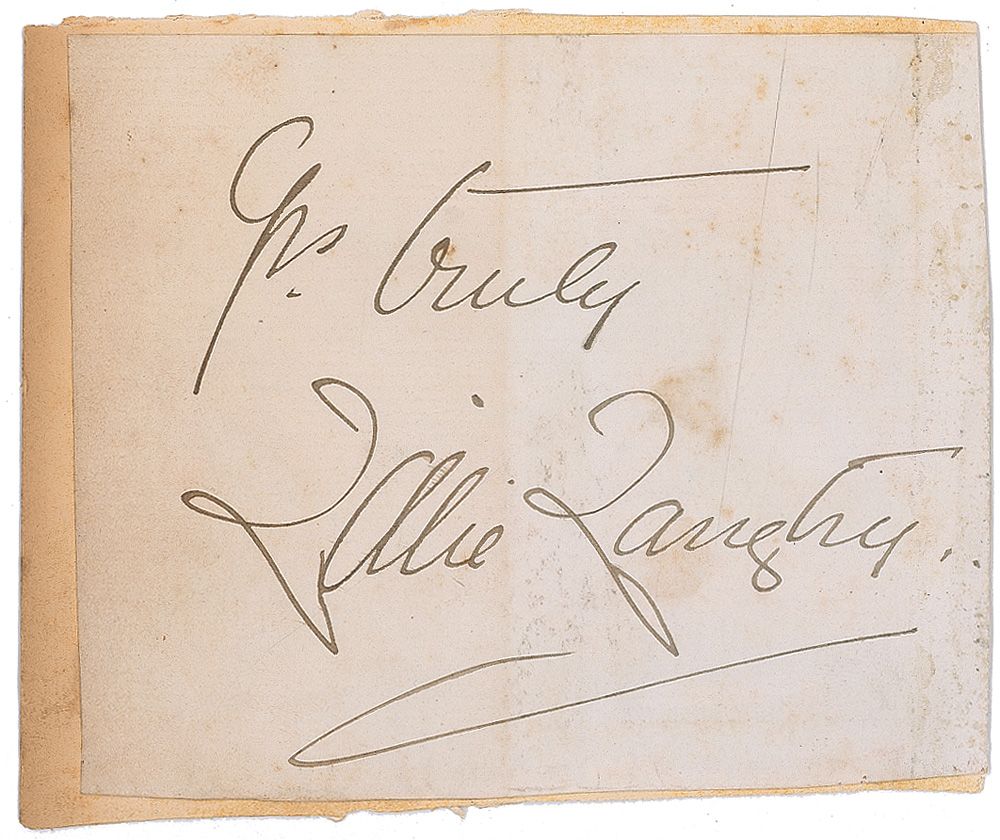 Yrs. truly
Lillie Langtry.